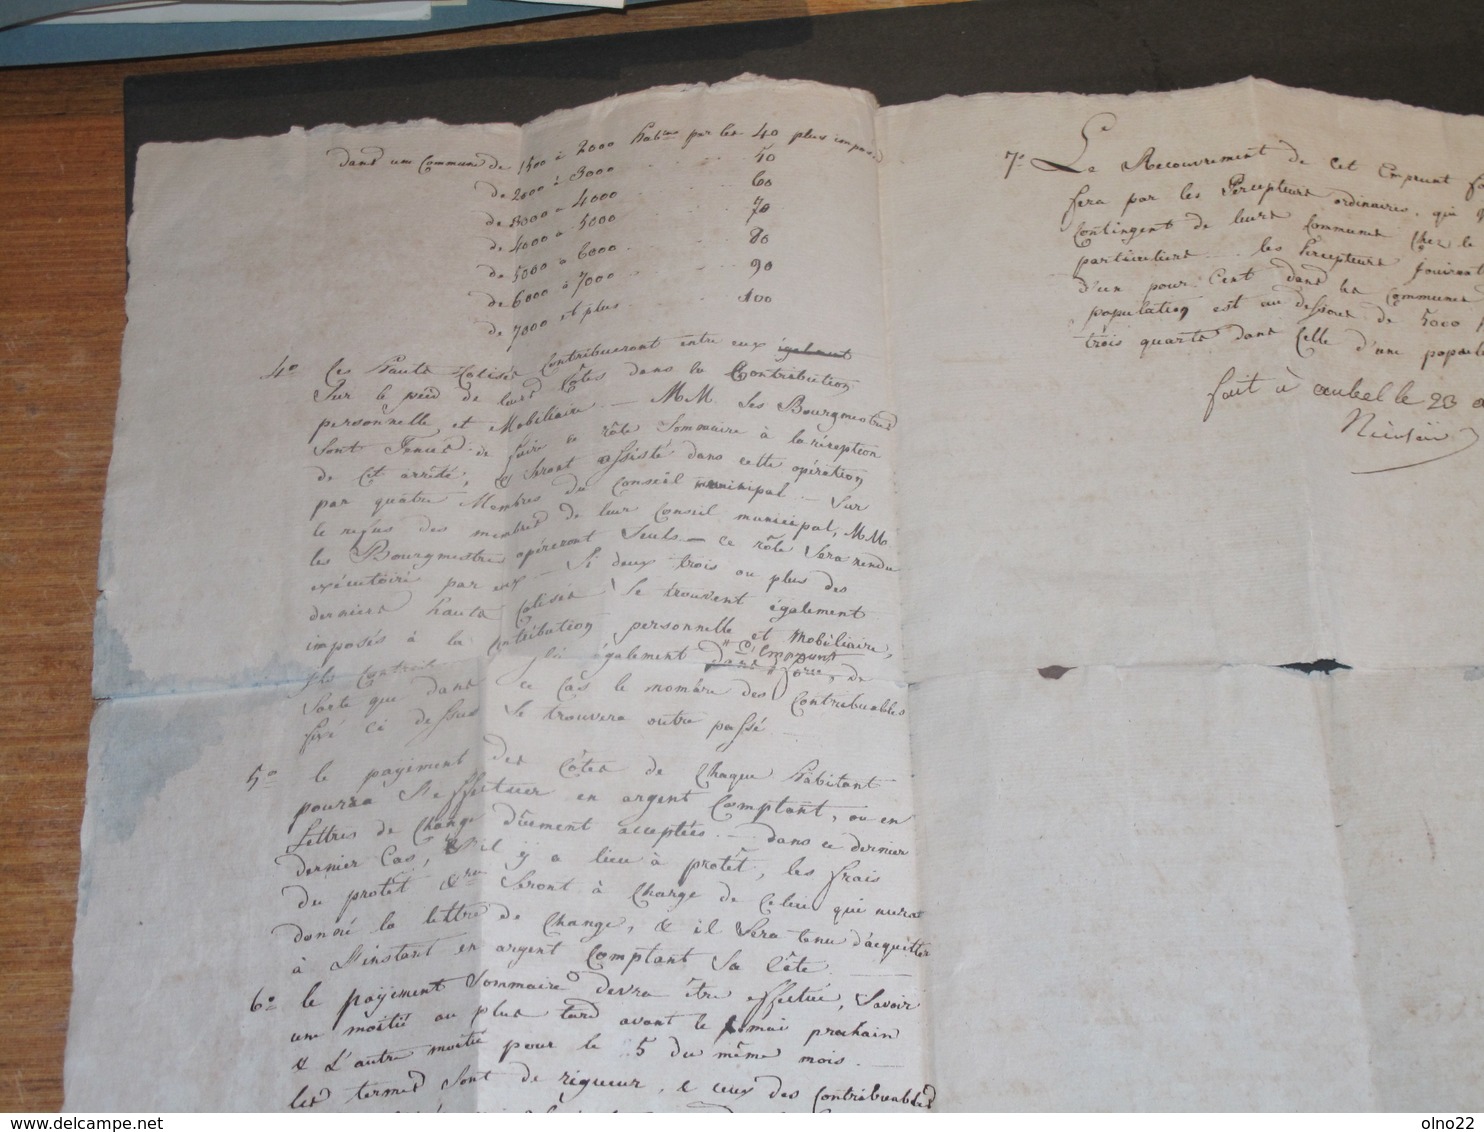 dans une Commune de 1500 à 2000 habitans par les 40 plus imposés
de 2000 à 3000 50
de 3000 à 4000 60
de 4000 à 5000 70
de 5000 à 6000 80
de 6000 à 7000 90
de 7000 et plus 100
4o Ces hauts Cotisés Contribueront entre eux également
Sur le pied de leurs Côtes dans la Contribution
personnelle et Mobiliaire — MM. les Bourgmestres
sont Tenus de faire ce rôle Sommaire à la réception
de Cet arrêté, & seront assistés dans cette opération
par quatre Membres du Conseil municipal — Sur
le refus des membres de leur Conseil municipal, MM.
les Bourgmestres opéreront Seuls — ce rôle Sera rendu
exécutoire par eux — Si deux trois ou plus des
derniers hauts Cotisés Se trouvent également
imposés à la Contribution personnelle et Mobiliaire,
également dans l'Emprunt forcé, de
Sorte que dans ce Cas le nombre des Contribuables
fixé ci dessus Se trouvera outre passé
5o le payement des Côtes de Chaque habitant
pourra S'effectuer en argent Comptant, ou en
Lettres de Change dûement acceptées — dans ce dernier
dernier Cas, S'il y a lieu à protêt, les frais
du protêt &ra Seront à Charge de Celui qui aurat
donné la lettre de Change, & il Sera tenu d'acquitter
à l'instant en argent Comptant Sa Côte
6o le payement Sommaire devra être effectué, Savoir
une moitié au plus tard avant le 1 mai prochain
& L'autre moitié pour le 15 du même mois —
les termes Sont de rigueur, & ceux des Contribuables
7o Le Recouvrement de cet Emprunt
Sera par les Percepteurs ordinaires, qui
Contingent de leurs Communes chez le
particuliers les Percepteurs Jouiront
d'un pour Cent dans les Communes
population est au dessous de 5000
trois quarts dans Celle d'une
fait à aubel le 23